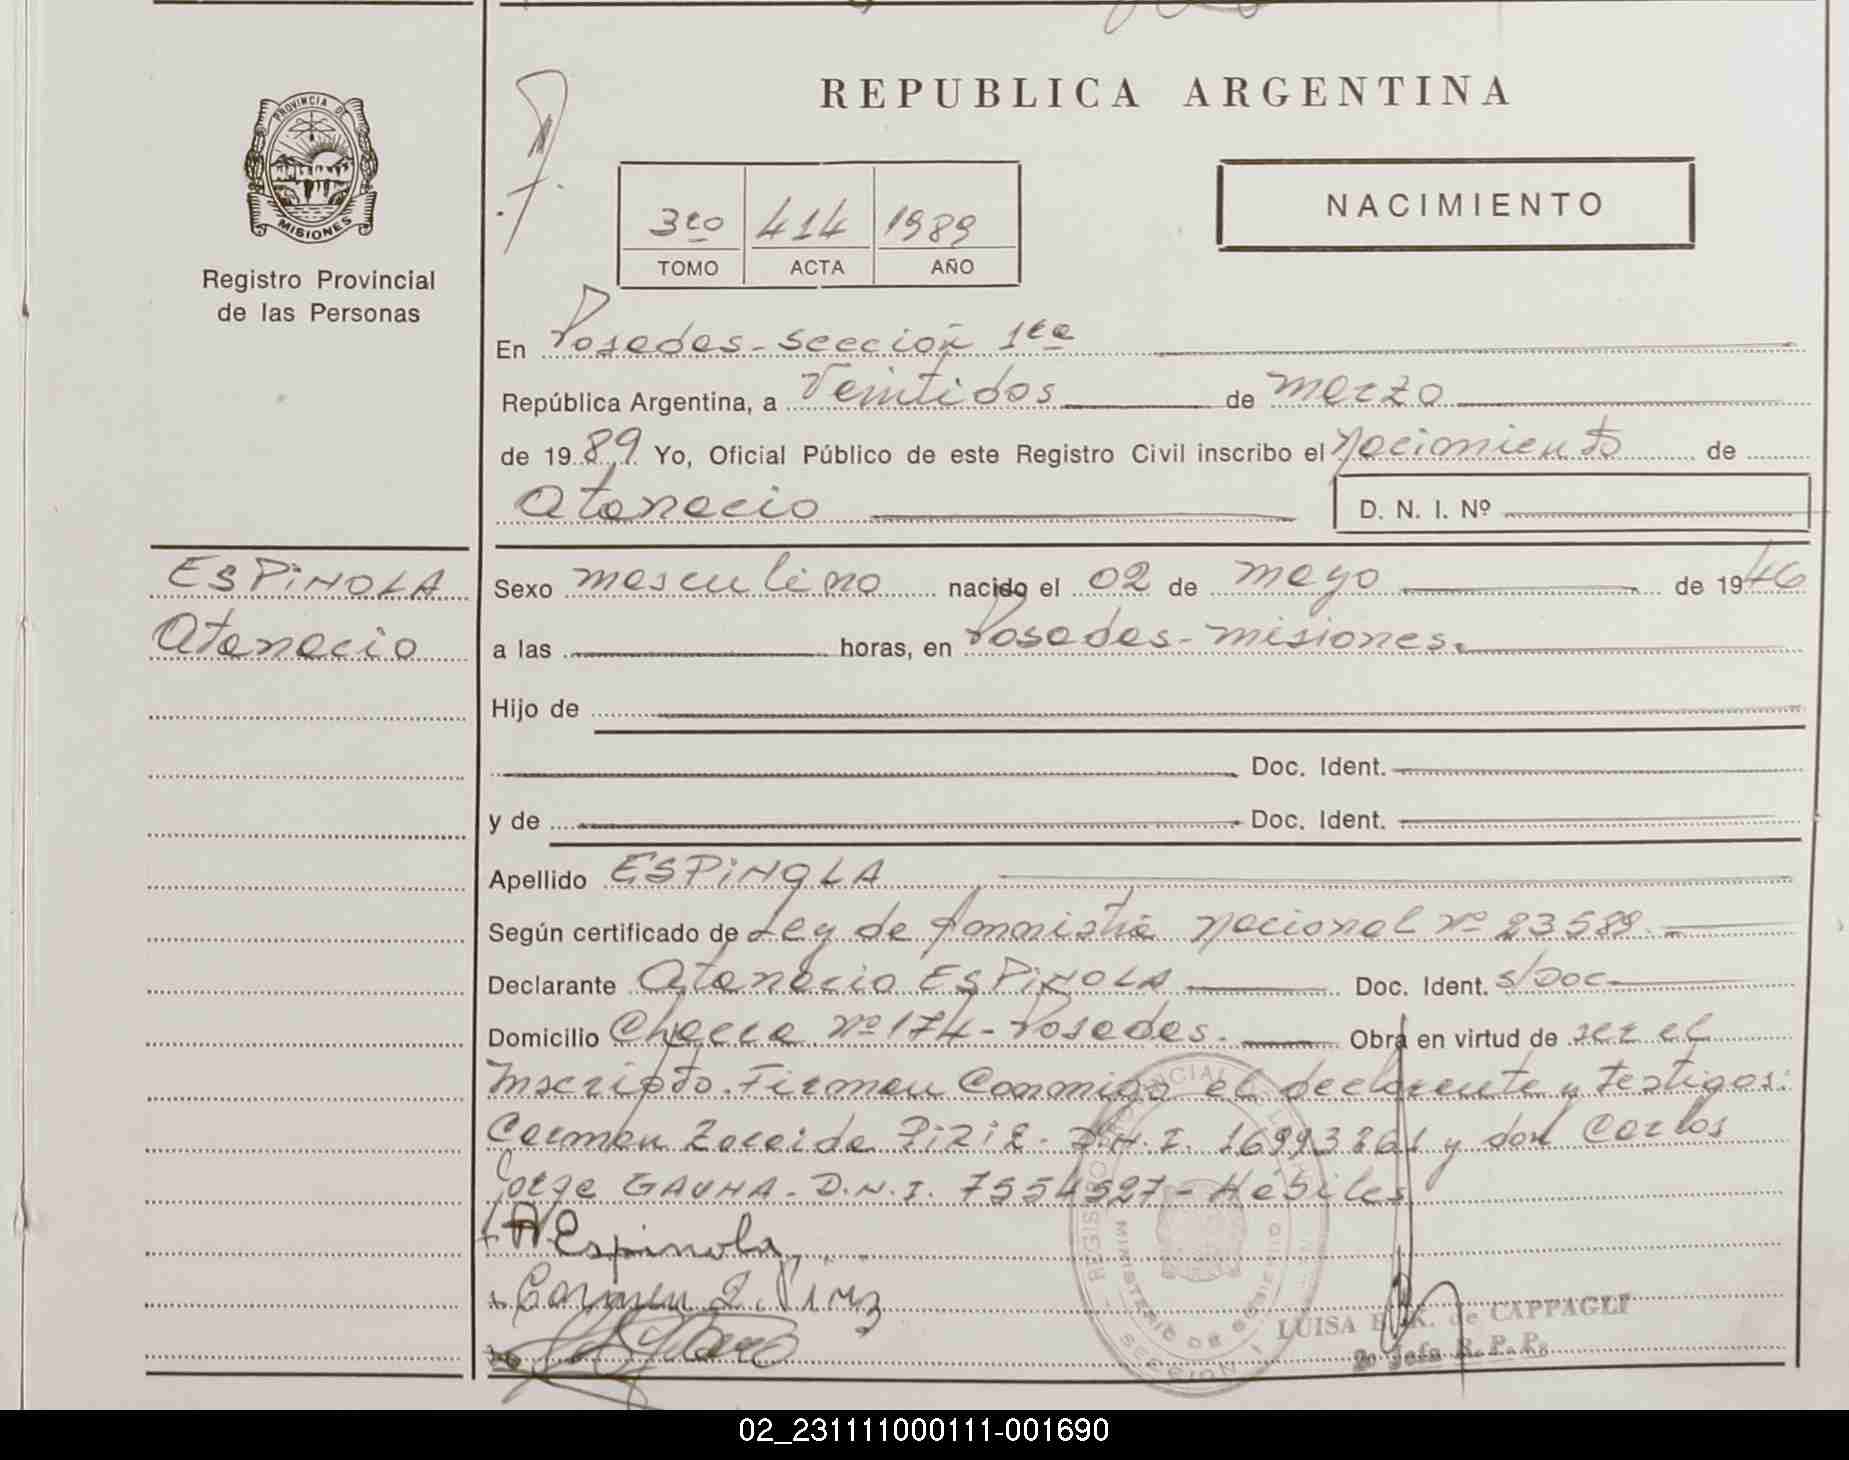 REPUBLICA ARGENTINA
PROVINCIA DE
MISIONES
Registro Provincial
de las Personas
3ro 414 1989
TOMO ACTA AÑO
NACIMIENTO
En Posadas - sección 1ra
República Argentina, a Veintidos de marzo
de 1989 Yo, Oficial Público de este Registro Civil inscribo el Nacimiento de
Atanacio D. N. I. Nº
ESPINOLA
Atanacio
Sexo masculino nacido el 02 de mayo de 1946
a las horas, en Posadas - misiones.
Hijo de
Doc. Ident.
y de Doc. Ident.
Apellido ESPINOLA
Según certificado de Ley de Amnistia Nacional Nº 23589.
Declarante Atanacio ESPINOLA Doc. Ident. S/DOC
Domicilio Chacra Nº 174 - Posadas. Obra en virtud de ser el
Inscripto. Firman Conmigo el declarante y testigos:
Carmen Zoraida PiRiZ - D.N.I. 16993261 y don Carlos
Jorge GAUNA - D.N.I. 7554527 - Hábiles
A Espinola
Carmen Z. Piriz
LUISA E. K. de CAPPAGLI
2º Jefa R. P. P.
02_231111000111-001690